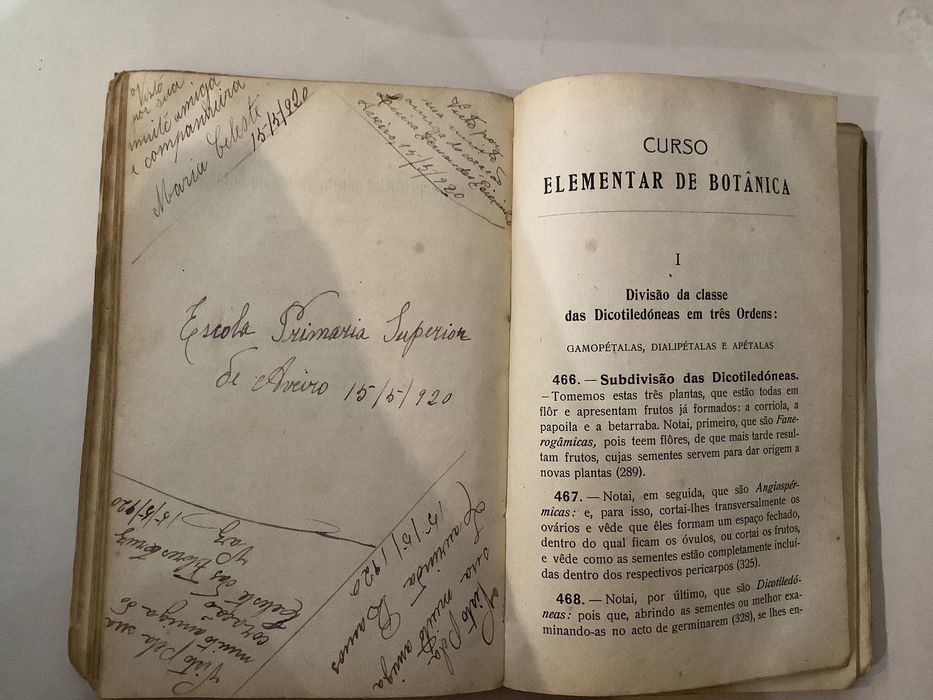 Visto
por sua
muito amiga
e companheira
Maria Celeste
15/5/920
Visto por
sua
amiga do coração
Aveiro, 15/5/920
Escola Primaria Superior
de Aveiro 15/5/920
Visto pela sua
muito amiga do
coração
Celeste das Flores Cruz
Vaz
15/5/920
Visto pela
sua muito amiga
Laurinda Ramos
15/5/1920
CURSO
ELEMENTAR DE BOTÂNICA
I
Divisão da classe
das Dicotiledóneas em três Ordens:
GAMOPÉTALAS, DIALIPÉTALAS E APÉTALAS
466. — Subdivisão das Dicotiledóneas.
— Tomemos estas três plantas, que estão todas em
flôr e apresentam frutos já formados: a corriola, a
papoila e a betarraba. Notai, primeiro, que são Fane-
rogâmicas, pois teem flôres, de que mais tarde resul-
tam frutos, cujas sementes servem para dar origem a
novas plantas (289).
467. — Notai, em seguida, que são Angiospér-
micas: e, para isso, cortai-lhes transversalmente os
ovários e vêde que êles formam um espaço fechado,
dentro do qual ficam os óvulos, ou cortai os frutos,
e vêde como as sementes estão completamente incluí-
das dentro dos respectivos pericarpos (325).
468. — Notai, por último, que são Dicotiledó-
neas: pois que, abrindo as sementes ou melhor exa-
minando-as no acto de germinarem (328), se lhes en-